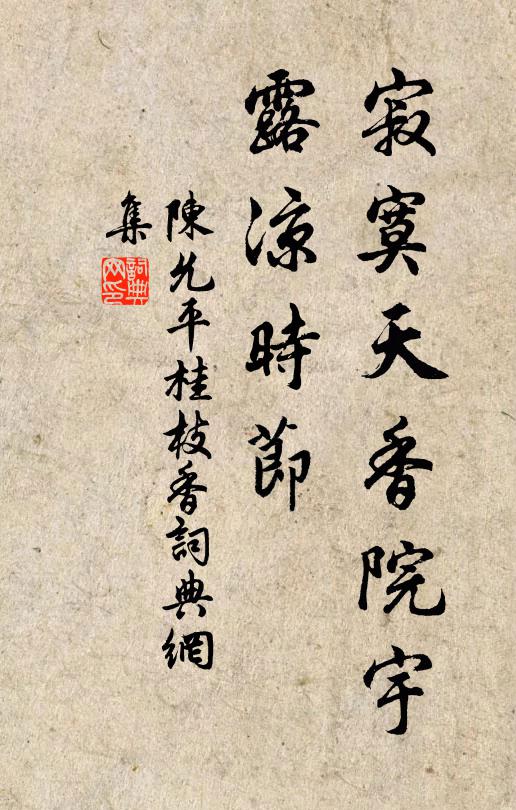 寂寞天香院宇
露涼時節
陳允平桂枝香詞典網
集
詞典
网印